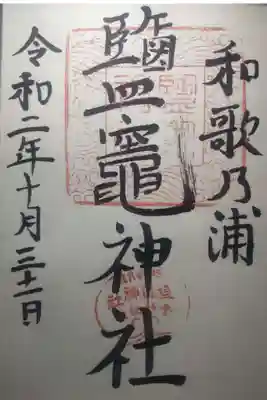 和歌乃浦
鹽竈神社
令和二年十月三十一日